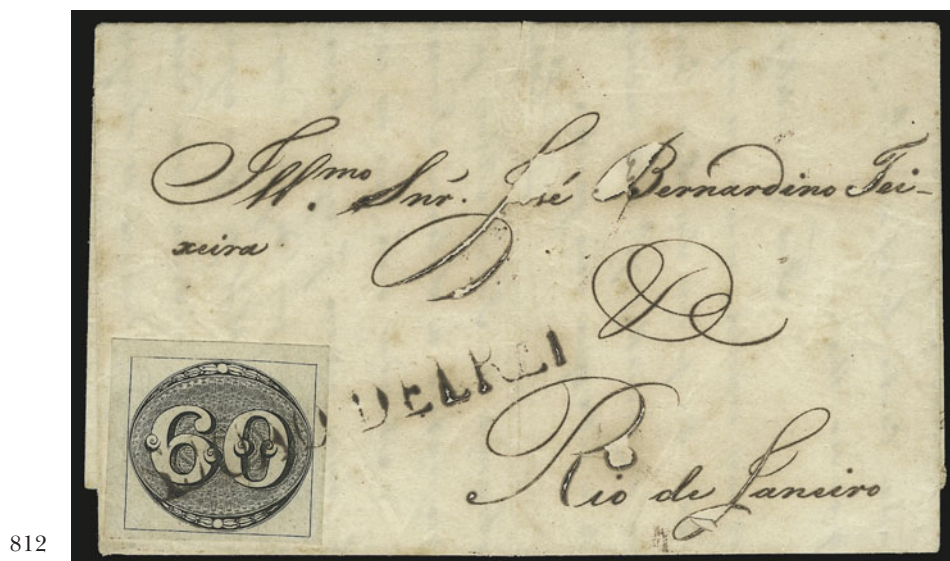 Ill.mo Snr. José Bernardino Tei-
xeira
DELREI
60
Rio de Janeiro
812